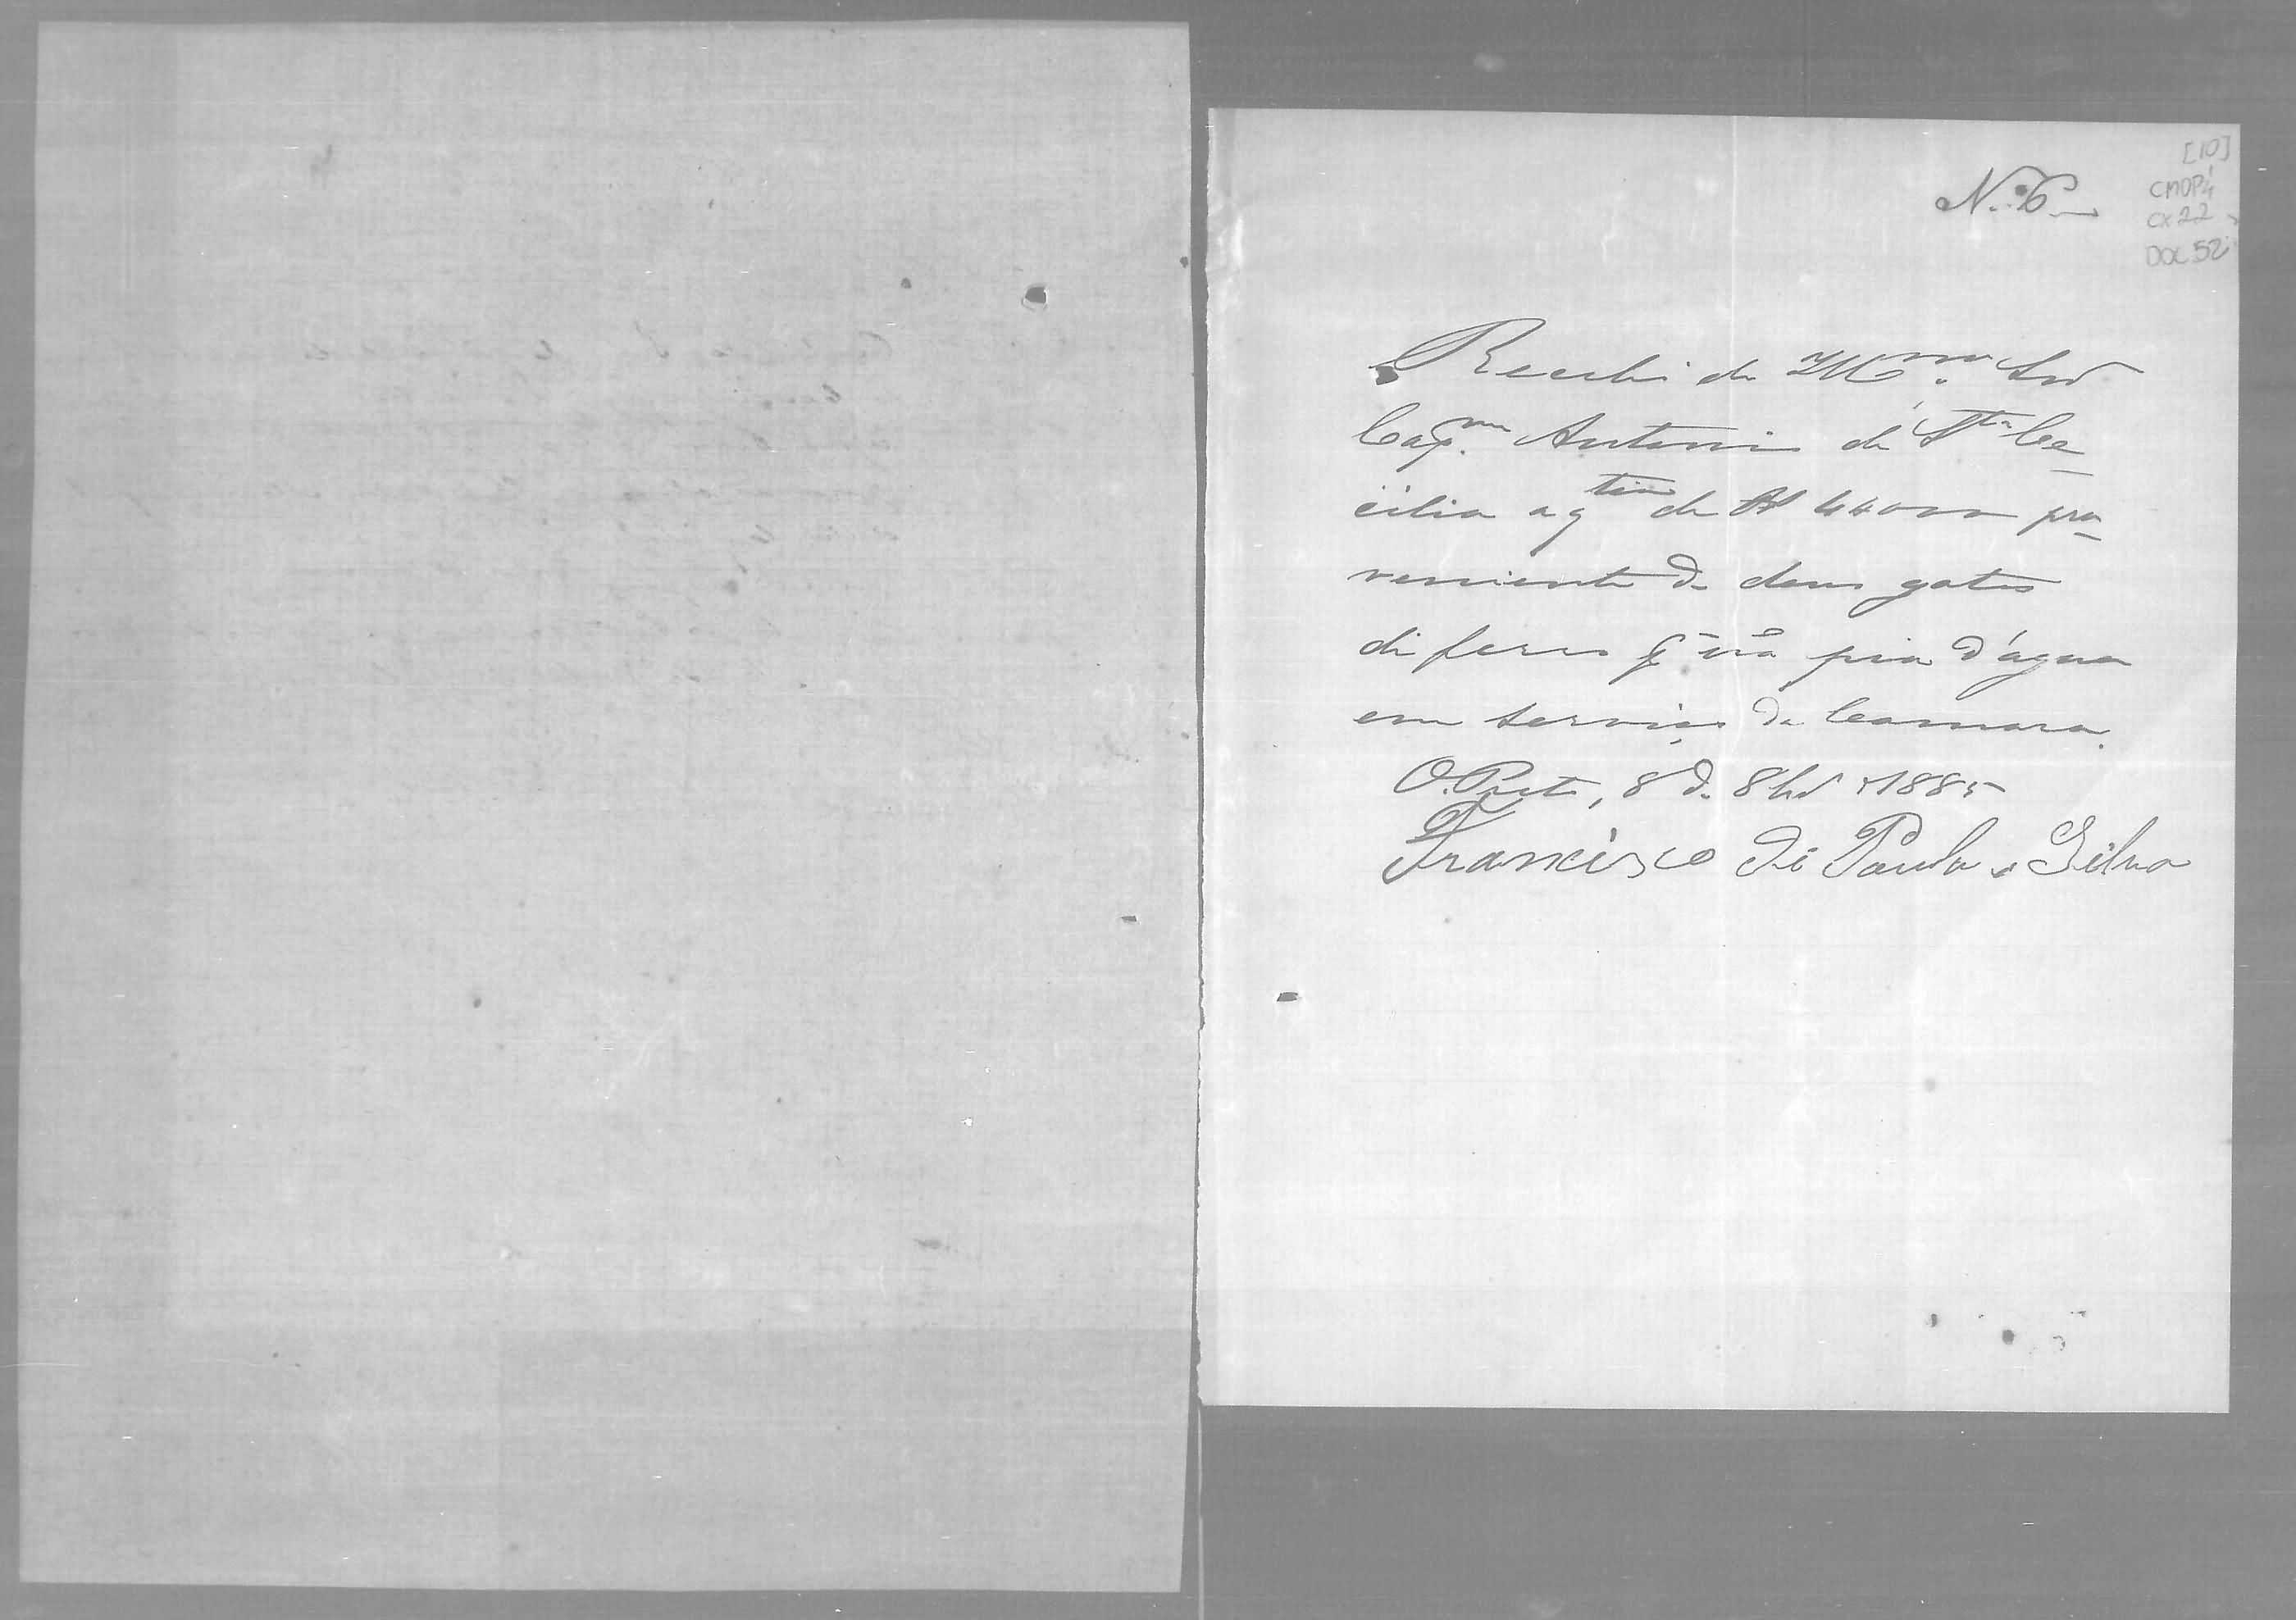 N.º 6
[10]
CMOP 4
CX 22
DOC 52
Recebi do Illmo. Snr
Capm. Antonio de Sta Ce
cilia a qtia de R 4#000 pro
veniente de dous gatos
de ferro pª pia d'agua
em serviço da Camara.
O. Preto, 8 de 8bro 1885
Francisco de Paula e Silva